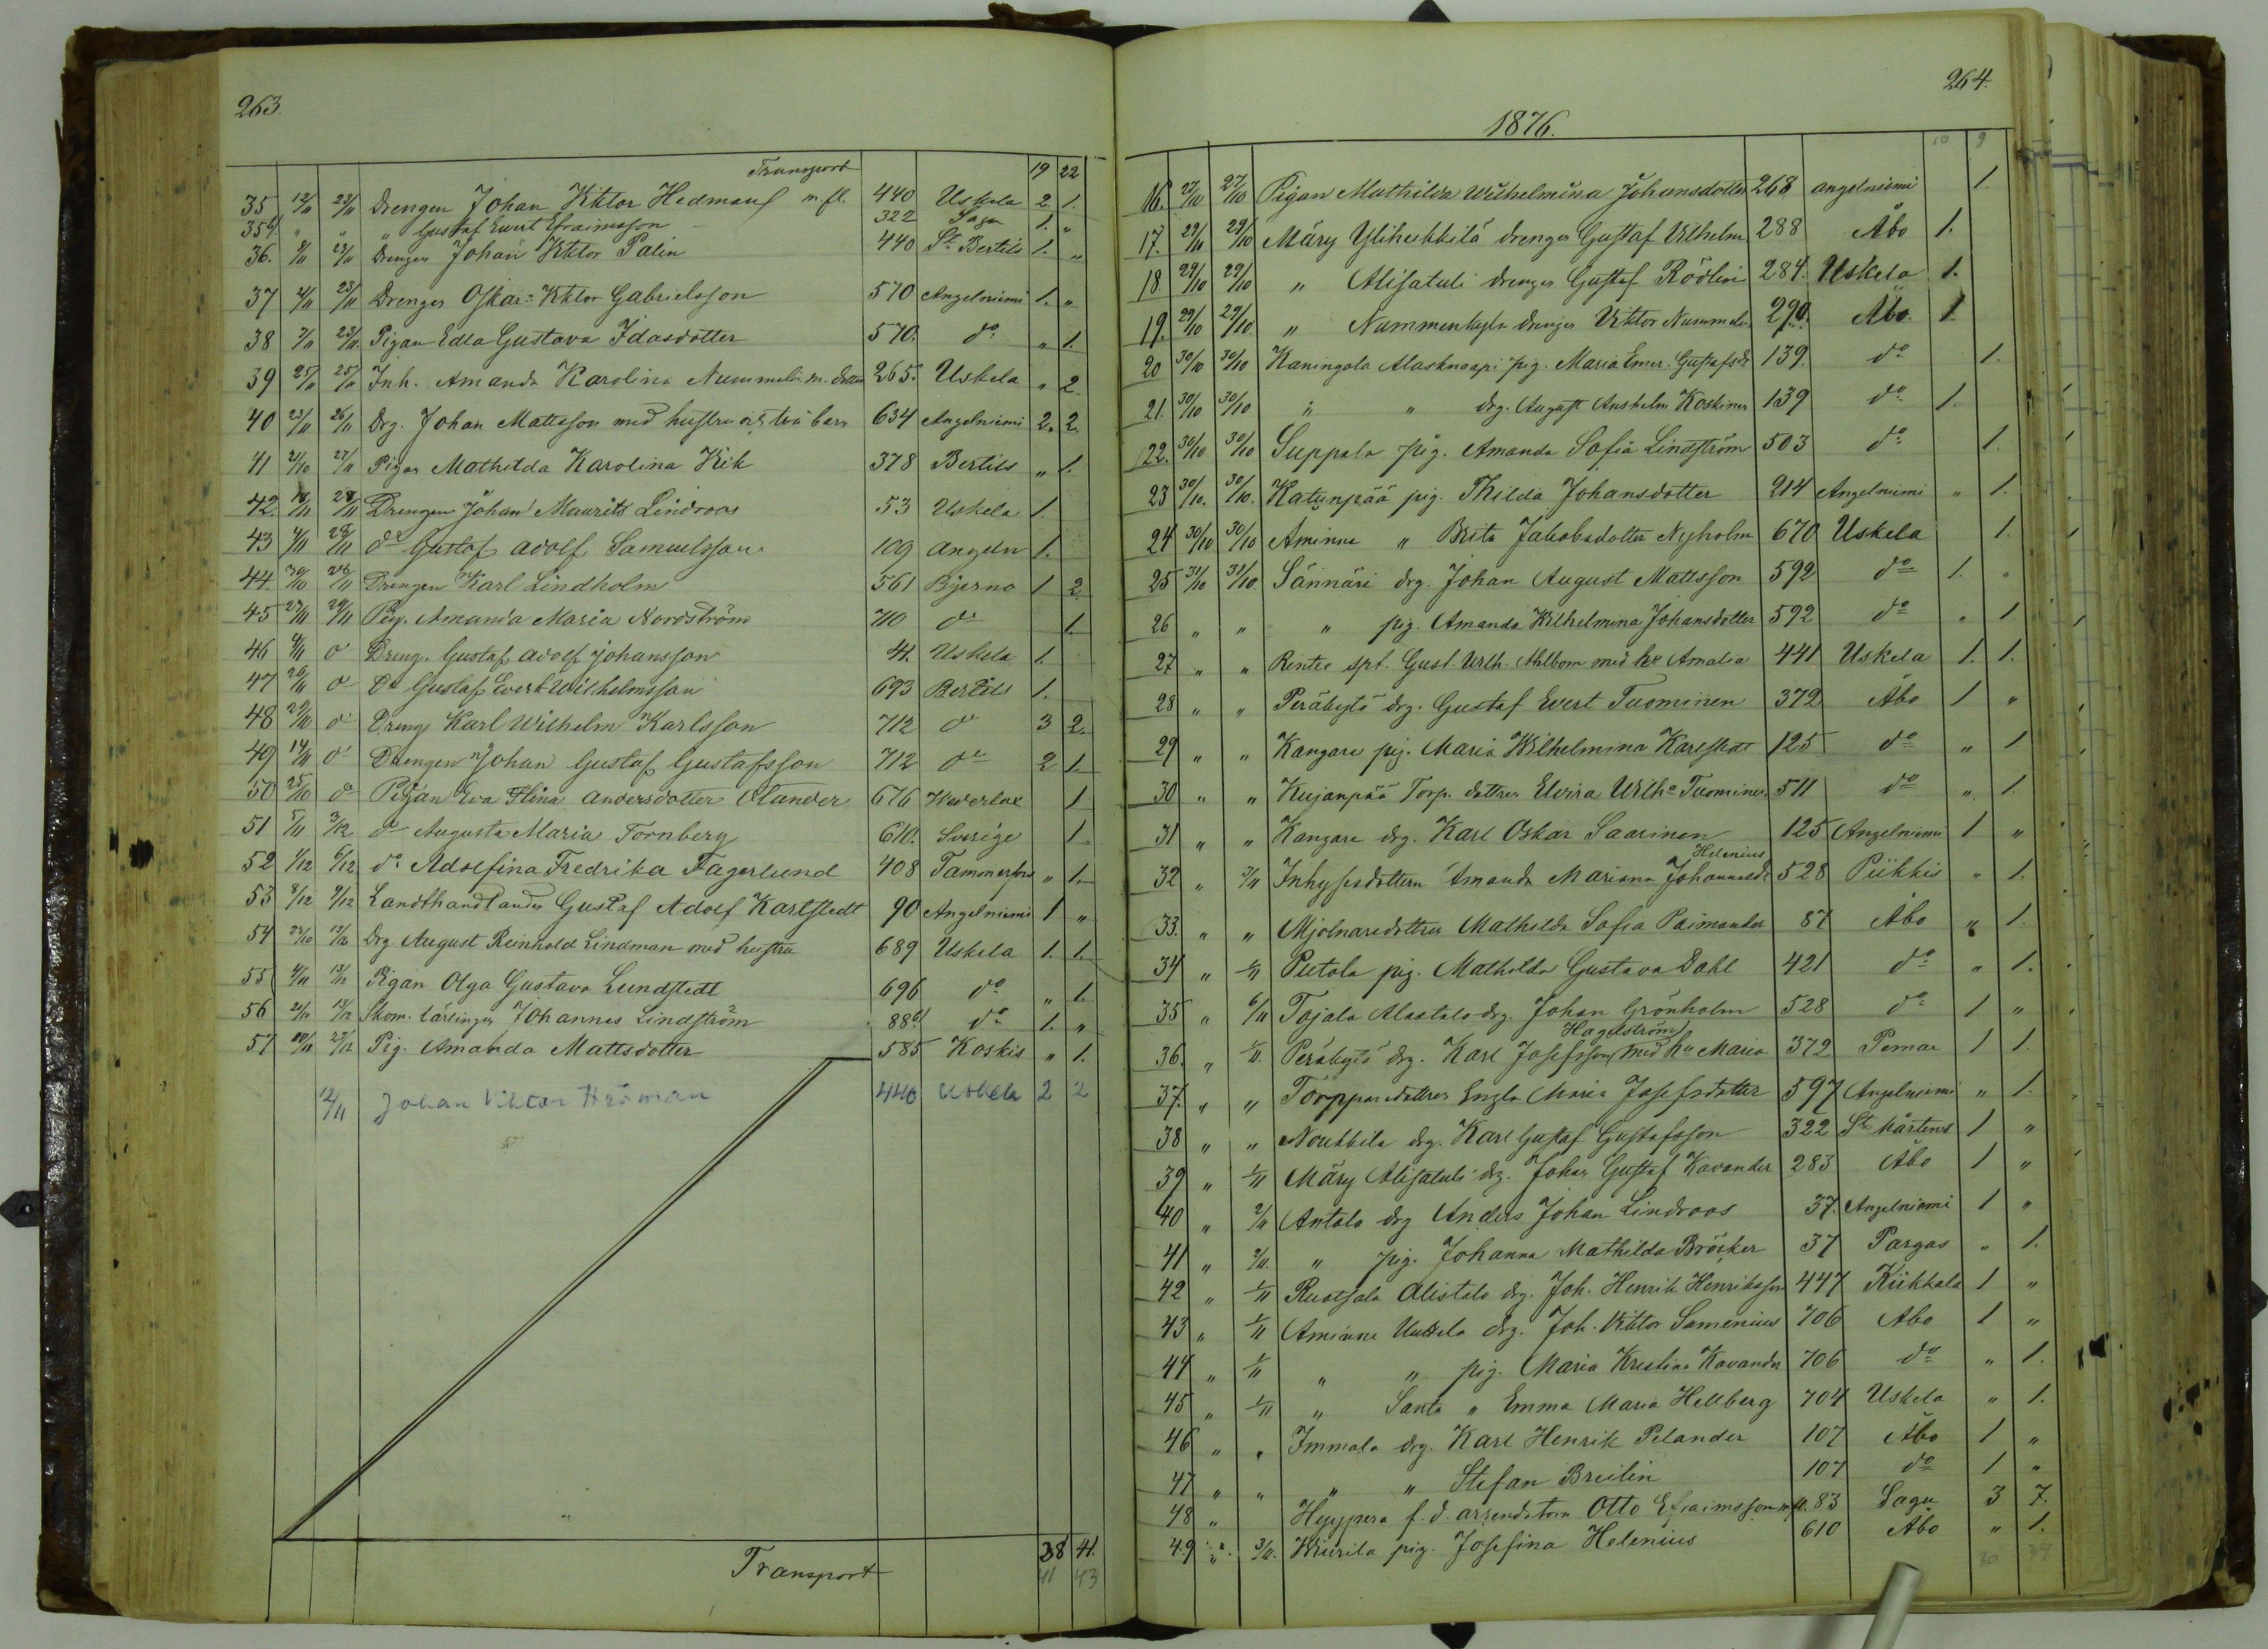 263.
Transport 19 22
35 12/11 23/11 Drengen Johan Viktor Hedman m. fl. 440 Uskela 2 1.
35½ " " " Gustaf Evert Efraimsson 322 Sagu 1. "
36. 8/11 23/11 Drengen Johan Viktor Palin 440 St Bertils 1. "
37 4/11 23/11 Drengen Oskar Viktor Gabrielsson 570 Angelniemi 1. "
38 7/11 23/11 Pigan Edla Gustava Idasdotter 570. do " 1.
39 25/11 25/11 Inh. Amanda Karolina Nummelin m. dotter 265. Uskela " 2
40 23/11 26/11 Drg. Johan Mattsson med hustru och två barn 634 Angelniemi 2. 2.
41 2/10 27/11 Pigan Mathilda Karolina Vik 378 Bertils " 1.
42. 18/11 28/11 Drengen Johan Maurits Lindroos 53 Uskela 1.
43 4/11 28/11 do Gustaf Adolf Samuelsson 109 Angeln 1.
44. 30/10 28/11 Drengen Karl Lindholm 561 Bjerno 1 2
45 27/11 29/11 Pig. Amanda Maria Nordström 710 do 1.
46 9/11 d Dreng. Gustaf Adolf Johansson 41. Uskela 1.
47 26/11 d Do Gustaf Evert Wilhelmsson 693 Bertils 1.
48 29/10 d Dreng Karl Wilhelm Karlsson 712 do 3 2.
49 14/11 d Drengen Johan Gustaf Gustafsson 712 do 2 1.
50 25/10 d Pigan Eva Stina Andersdotter Olander 676 1
51 5/11 3/12 do Augusta Maria Tornberg 610. Sverige 1
52 1/12 6/12 do Adolfina Fredrika Fagerlund 408 Tammerfors " 1.
53 8/12 9/12 Landthandlanden Gustaf Adolf Karlstedt 90 Angelniemi 1 "
54 23/10 13/12 Drg August Reinhold Lindman med hustru 689 Uskela 1. 1.
55 4/11 13/12 Pigan Olga Gustava Lundstedt 696 do " 1.
56 21/10 13/12 Skom. lärlingen Johannes Lindström 88½ do 1. "
57 20/11 27/12 Pig. Amanda Mattsdotter 585 Koskis " 1.
12/11 Johan Viktor Hedman 440 Uskela 2 2
Transport 38 41.
41 43
264.
1876.
10 9
16. 27/10 27/10 Pigan Mathilda Wilhelmina Johansdotter 268 Angelniemi 1.
17. 29/10 29/10 Märy Yliheikkilä drengen Gustaf Vilhelm 288 Åbo 1.
18. 29/10 29/10 " Alisatuli drengen Gustaf Rödlin 284. Uskela 1.
19. 29/10 29/10 " Nummenkylä drengen Viktor Nummelin 290. Åbo. 1.
20 30/10 30/10 Kaningola Alasknaapi pig. Maria Emer. Gustafsdr 139. do 1.
21. 30/10 30/10 " " drg. August Anshelm Koskinen 139 do 1.
22. 30/10 30/10 Suppala pig. Amanda Sofia Lindström 503 do 1.
23 30/10. 30/10. Katunpää pig. Thilda Johansdotter 214 Angelniemi " 1.
24 30/10 30/10 Aminne " Brita Jakobsdotter Nyholm 670 Uskela 1.
25 31/10 31/10 Sännäri drg. Johan August Mattsson 592 do 1. "
26 " " " pig. Amanda Wilhelmina Johansdotter 592 do " 1
27 " " Rintee spt. Gust. Wilh. Ahlbom med hu Amalia 441 Uskela 1. 1.
28 " " Peräkytö drg. Gustaf Evert Tuominen 372 Åbo 1 "
29 " " Kangare pig. Maria Wilhelmina Karlstedt 125 do " 1
30 " " Kujanpää Torp. dottren Elvira Wilha Tuominen 511 do " 1
31 " " Kangare drg. Karl Oskar Saarinen 125 Angelniemi 1 "
Helenius
32 " 3/11 Inhysesdottern Amanda Mariana Johannesdr 528 Piikkis " 1.
33. " " Mjölnaredottren Mathilda Sofia Paimander 87 Åbo " 1.
34 " 1/11 Pietola pig. Mathilda Gustava Dahl 421 do " 1.
35 " 6/11 Tojala Alastalo drg. Johan Grönholm 528 do 1 "
Hagelström
36. " 1/11. Peräkytö drg. Karl Josefsson med hu Maria 372 Pemar 1 1.
37. " " Torpparedottren Engla Maria Josefsdotter 597 Angelniemi " 1.
38 " " Noukkila drg. Karl Gustaf Gustafsson 322 St Mårtens 1 "
39 " 1/11 Märy Alisatuli drg. Johan Gustaf Kavander 283 Åbo 1 "
40 " 2/11 Antola drg Anders Johan Lindroos 37. Angelniemi 1 "
41 " 2/11. " pig. Johanna Mathilda Bröcker 37 Pargas " 1.
42 " 1/11 Ruotsala Alistalo drg. Joh. Henrik Henriksson 447 Kiikkala 1 "
43 " 1/11 Aminne Uuskela drg. Joh. Viktor Samenius 706 Abo 1 "
44 " 1/11 " " pig. Maria Kristina Kavander 706 do " 1.
45 " 1/11 " Santa " Emma Maria Hellberg 704 Uskela " 1.
46 " " Immala drg. Karl Henrik Pelander 107 Åbo 1 "
47 " " " " Stefan Breilin 107 do 1 "
48 " Hyypera f. d. arrendatorn Otto Efraimsson m fl. 83 Sagu 3 7.
49 " 3/11. Kiurila pig. Josefina Helenius 610 Åbo " 1.
30 34